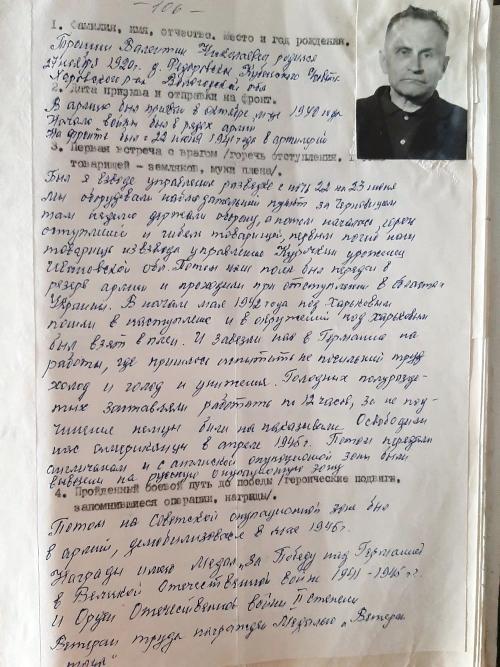 - 106 -
1. Фамилия, имя, отчество, место и год рождения.
Трошин Валентин Николаевич родился
27 июля 1920г. д. Федоровское Кубенского
Харовский р-он Вологодской обл
2. Дата призыва и отправки на фронт.
В армию был призван в октябре м-це 1940 года
Начало войны был в рядах армии
На фронте был с 22 июня 1941 года в артилерии
3. Первая встреча с врагом /горечь отступления,
товарищей - земляков, муки плена/.
Был я взводе управления разведке с ночи 22 на 23 июня
мы оборудовали наблюдательный пункт за Черновицам
там неделю держали оборону, а потом началась горечь
отступлений и гибель товарищей, первым погиб наш
товарищ из взвода управления Курочкин уроженец
Ивановской обл. Потом наш полк был передан в
резерв армии и проходили при отступлении в областях
Украины. В начале мая 1942 года под Харьковым
пошли в наступление и в окружении под Харьковым
был взят в плен. И завезли нас в Германию на
работы, где пришлось испытать не посильный труд
холод и голод и унижения. Голодных полуразде-
тых заставляли работать по 12 часов, за не под-
чинение немцы били на наказывали. Освободили
нас американцы в апреле 1945г. Потом передали
англичанам и с английской окупационной зоны были
вывезены на русскую окупационную зону
4. Пройденный боевой путь до победы /героические подвиги,
запомнившиеся операции, награды/.
Потом на Советской окупационной зоне был
в армий, демобилизовался в мае 1946г.
Награды имею Медаль "За Победу над Германией
в Великой Отечественной войне 1941-1945гг.
и Орден Отечественной войны II степени
Ветеран труда награжден Медалью "Ветеран
труда"